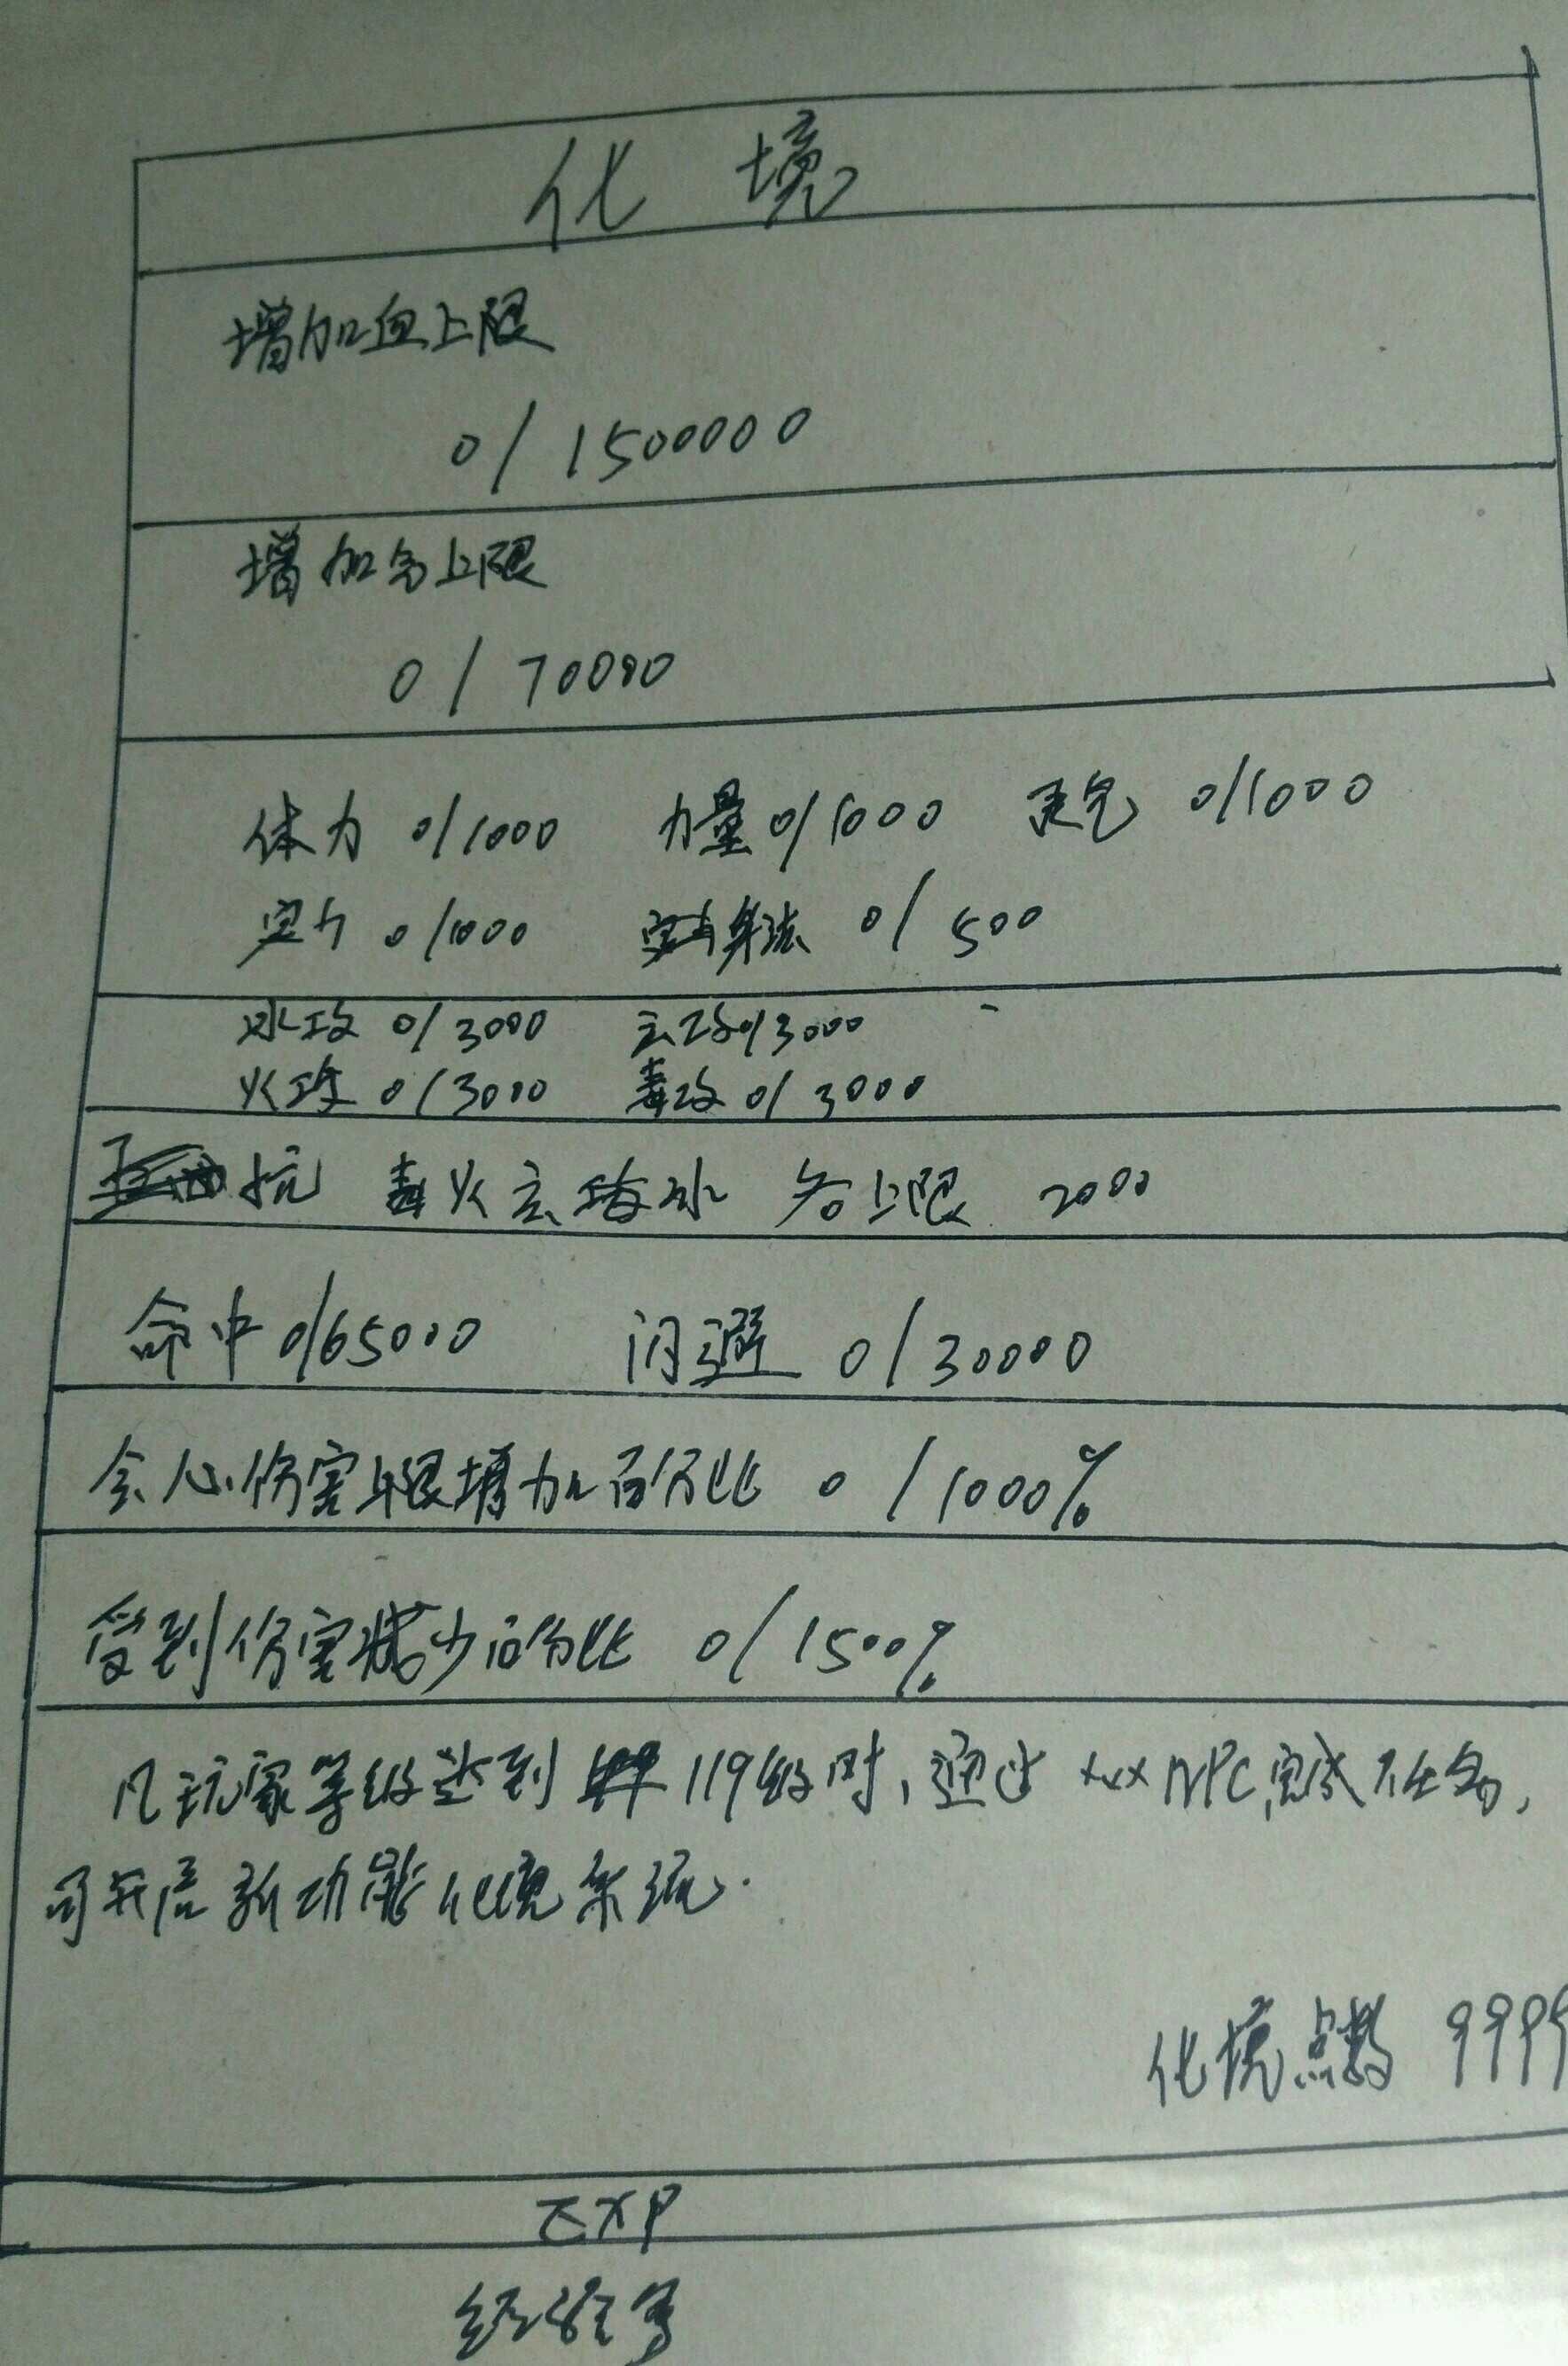 化境
增加血上限
0/1500000
增加气上限
0/70000
体力 0/1000 力量 0/1000 灵气 0/1000
定力 0/1000 身法 0/500
冰攻 0/3000 玄攻 0/3000
火攻 0/3000 毒攻 0/3000
抗 毒火玄冰 各上限 2000
命中 0/65000 闪避 0/30000
会心伤害上限增加百分比 0/1000%
受到伤害减少百分比 0/1500%
凡玩家等级达到 119级时,通过 xxx NPC完成任务,
可开启新功能化境系统.
化境点数 9999
EXP
经验